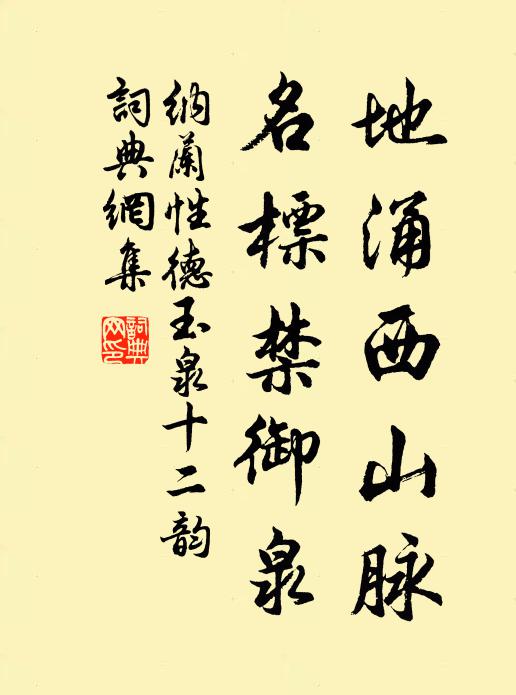 地涌西山脉
名標禁御泉
納蘭性德玉泉十二韵
詞典網集
詞典网印